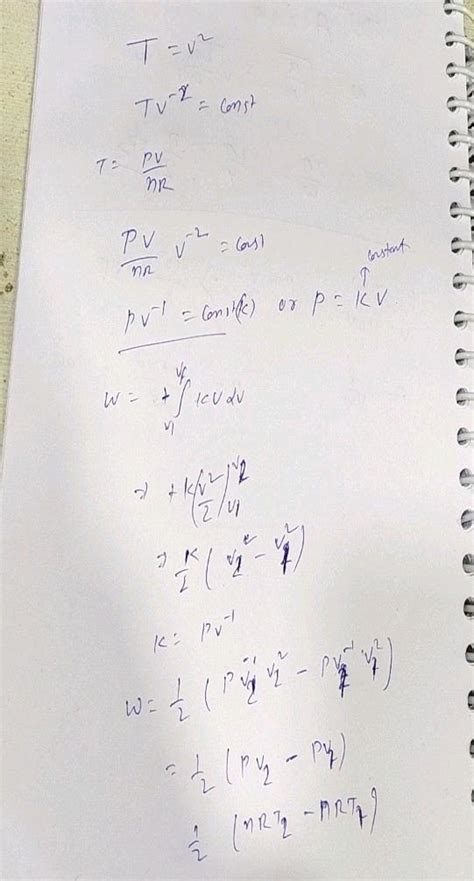 T = v²
Tv⁻² = const
T = PV/nR
PV/nR v⁻² = const
constant
↑
PV⁻¹ = const(k) or P = KV
W = +∫_{V1}^{V2} KV dV
⇒ +K(V²/2)_{V1}^{V2}
⇒ K/2 (V₂² − V₁²)
K = PV⁻¹
W = 1/2 (PV₂⁻¹ V₂² − PV₁⁻¹ V₁²)
= 1/2 (PV₂ − PV₁)
1/2 (nRT₂ − nRT₁)